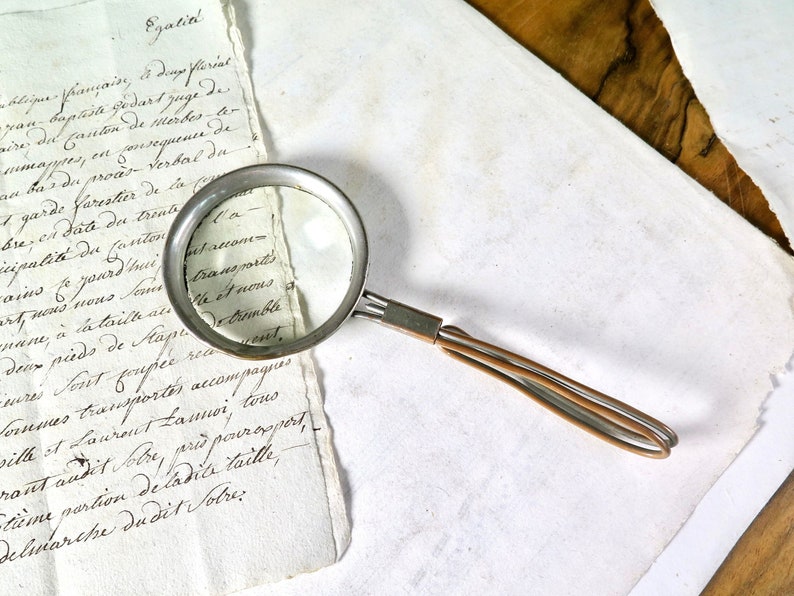 Egalité
publique française, le deux floréal
jean-baptiste Godart juge de
aire du Canton de Merbes-le-
mmappes, en consequence de
au bas du procès-verbal du
garde forestier de la com
bre, en date du trente
icipalité du Canton l'a-
ains ce jourd'hui accom=
art, nous nous Somm transportés
mane, à la taille et nous
deux pieds de Sta de tremble
eures Sont coupée recemment.
Sommes transportés accompagnés
sille et Laurent Lannoi, tous
urant audit Solre, pris pour expert,
tième portion de ladite taille,
delmarche du dit Solre.